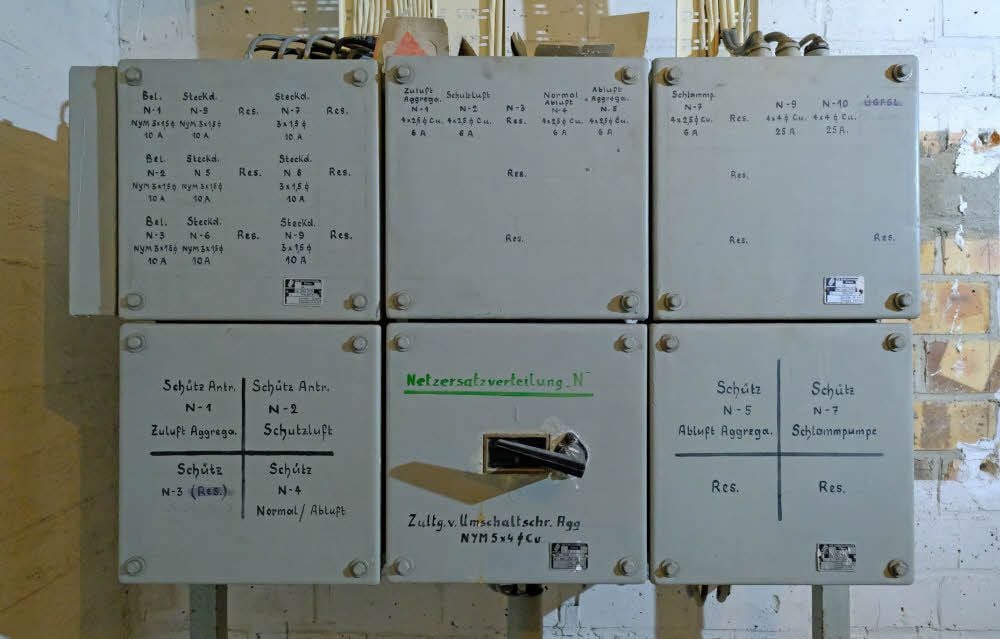 Bel. Steckd. Steckd.
N-1 N-9 Res. N-7 Res.
NYM 3x1,5¢ NYM 3x1,5¢ 3x1,5¢
10 A 10 A 10 A
Bel. Steckd. Steckd.
N-2 N 5 Res. N 8 Res.
NYM 3x1,5¢ NYM 3x1,5¢ 3x1,5¢
10 A 10 A 10 A
Bel. Steckd. Steckd.
N-3 N-6 Res. N-9 Res.
NYM 3x1,5¢ NYM 3x1,5¢ 3x1,5¢
10 A 10 A 10 A
Zuluft Schutzluft Normal Abluft
Aggrega. Abluft Aggrega.
N-1 N-2 N-3 N-4 N-5
4x2,5¢ Cu. 4x2,5¢ Cu. Res. 4x2,5¢ Cu. 4x2,5¢ Cu.
6 A 6 A 6 A 6 A
Res.
Res.
Schlammp.
N-7 N-9 N-10
4x2,5¢ Cu. Res. 4x4¢ Cu. 4x4¢ Cu.
6 A 25 A 25 A.
Res.
Res. Res.
Schütz Antr. Schütz Antr.
N-1 N-2
Zuluft Aggrega. Schutzluft
Schütz Schütz
N-3 (Res.) N-4
Normal/Abluft
Netzersatzverteilung „N"
Zultg. v. Umschaltschr. Agg
NYM 5x4¢ Cu.
Schütz Schütz
N-5 N-7
Abluft Aggrega. Schlammpumpe
Res. Res.